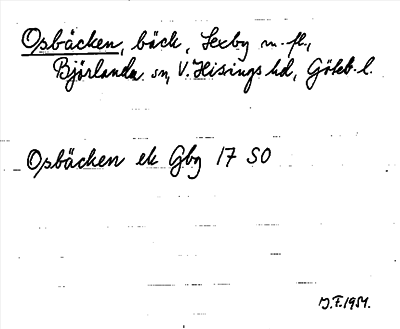 Osbäcken, bäck, Lexby m. fl.,
Björlanda sn, V. Hisings hd, Göteb. l.
Osbäcken ek Gbg 17 SO
1951.